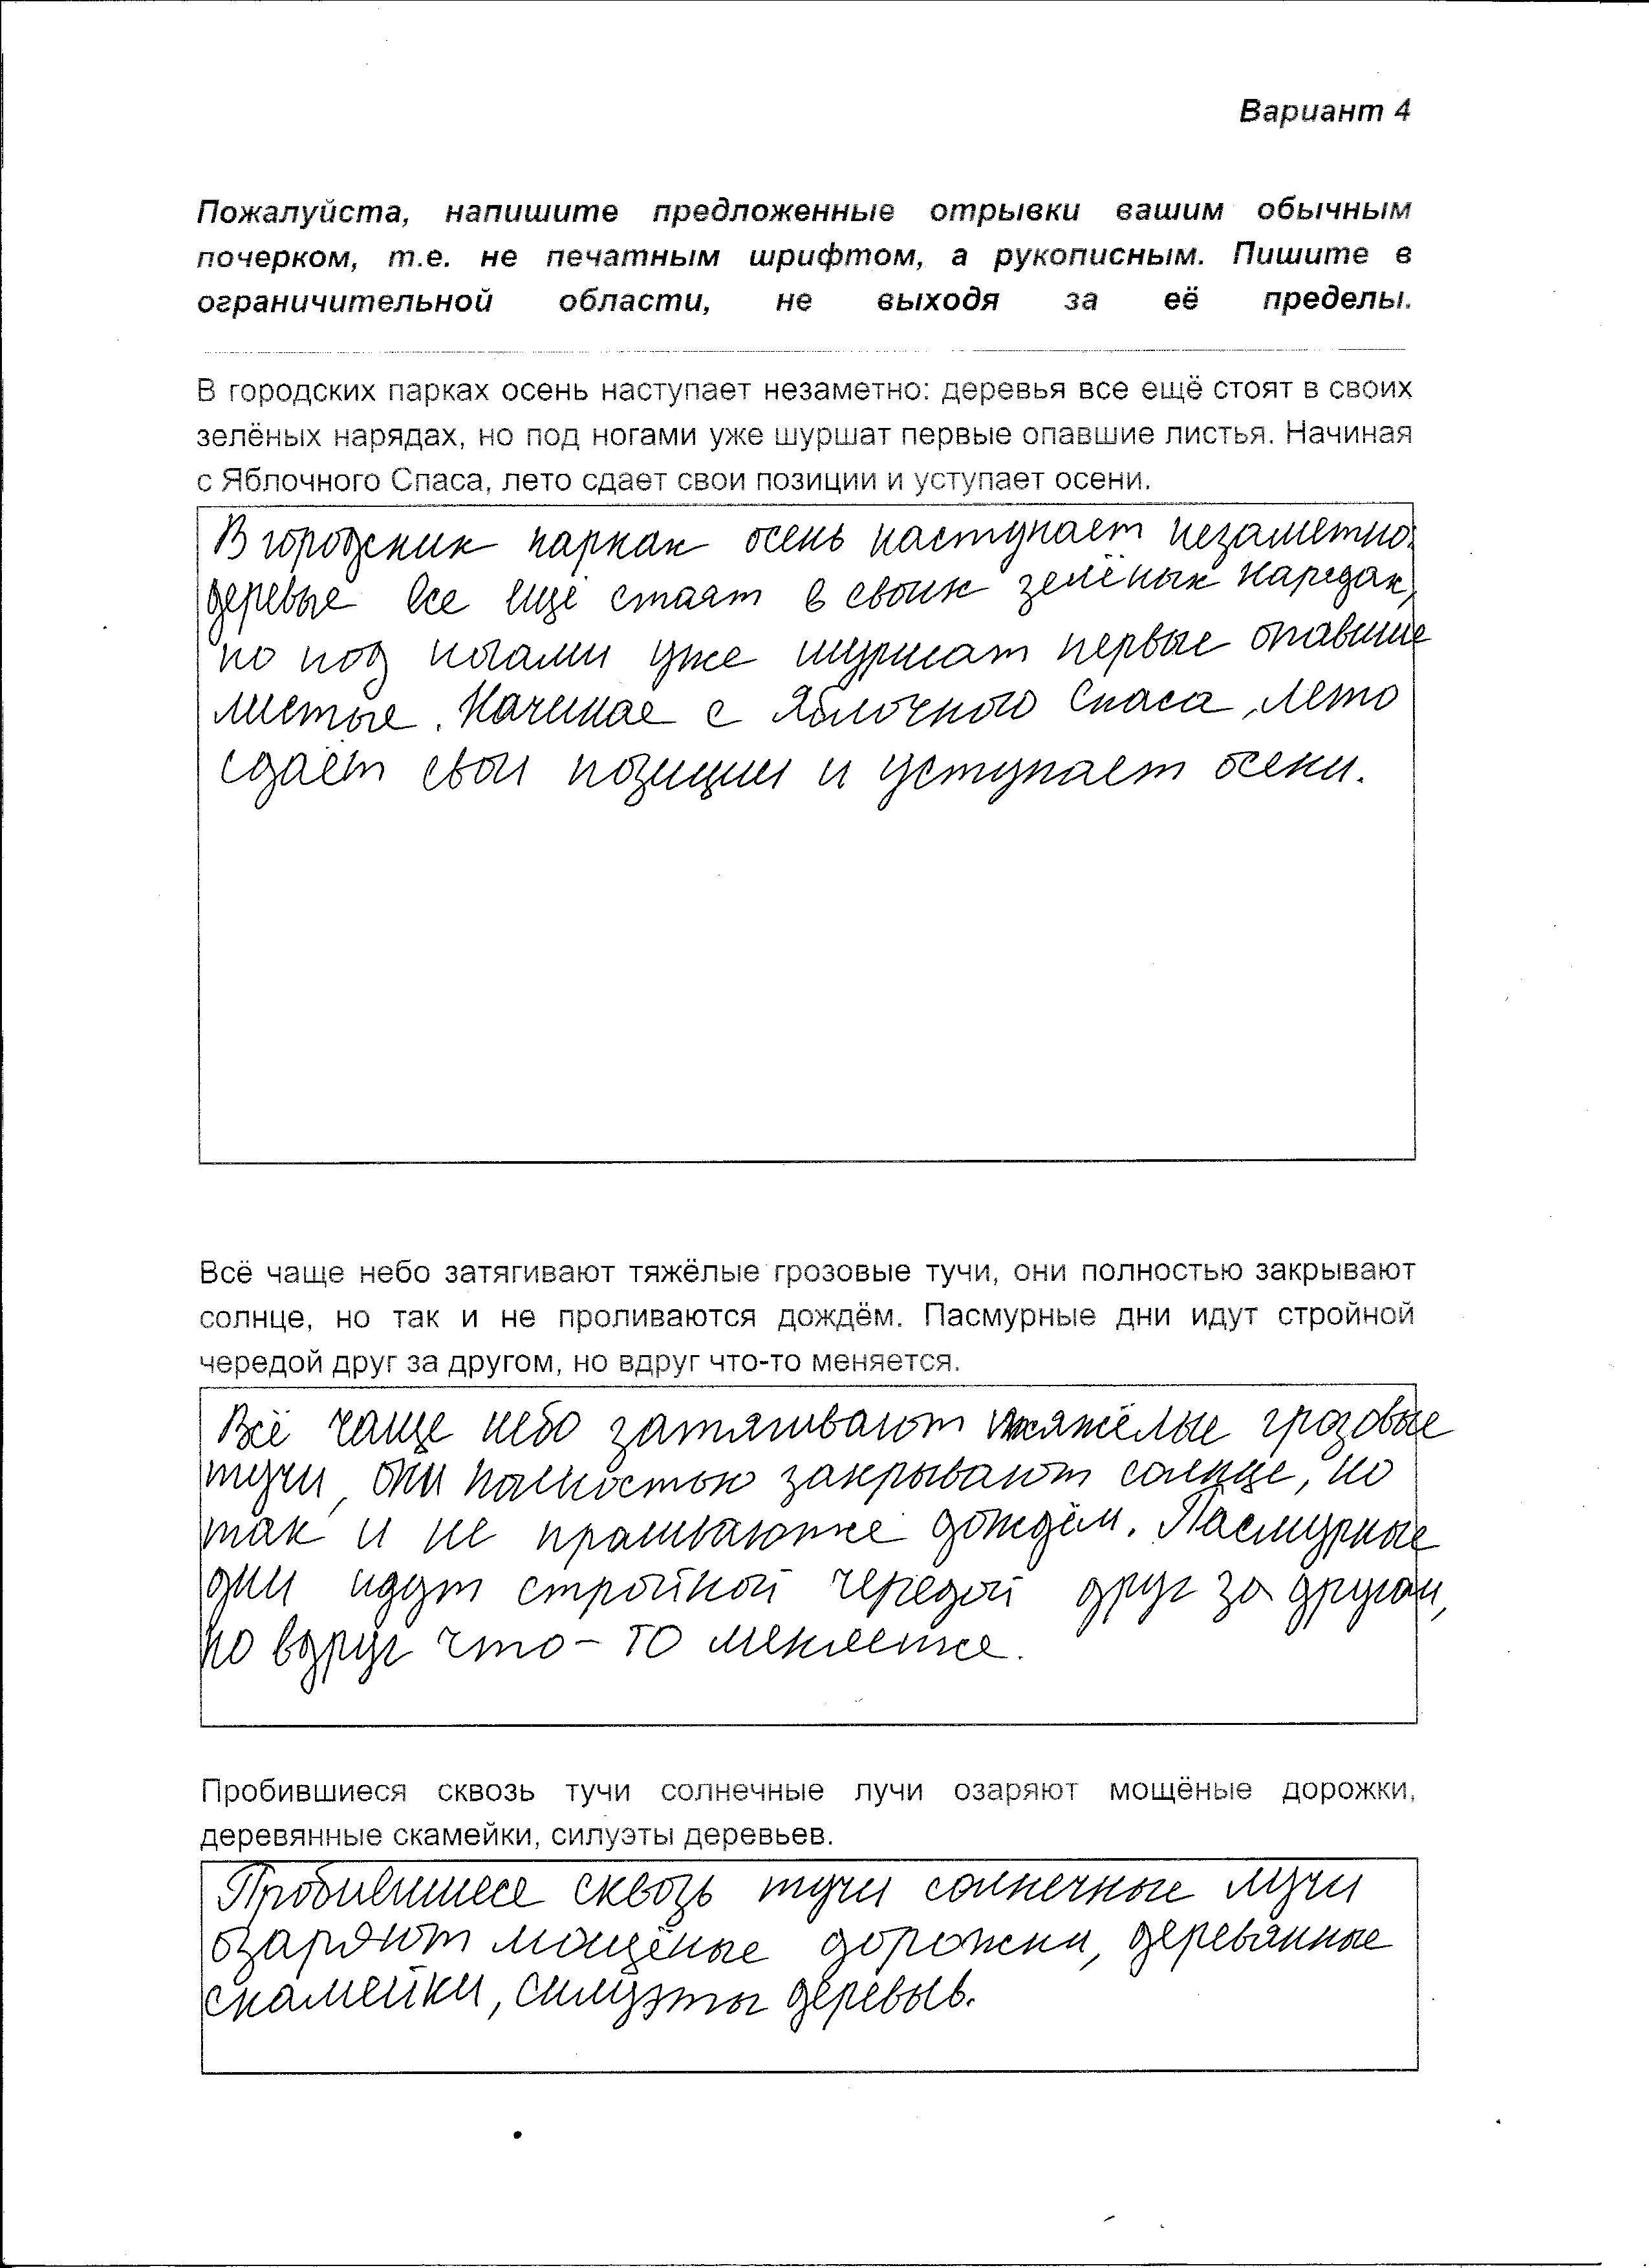 Вариант 4
Пожалуйста, напишите предложенные отрывки вашим обычным
почерком, т.е. не печатным шрифтом, а рукописным. Пишите в
ограничительной области, не выходя за её пределы.
В городских парках осень наступает незаметно: деревья все ещё стоят в своих
зелёных нарядах, но под ногами уже шуршат первые опавшие листья. Начиная
с Яблочного Спаса, лето сдает свои позиции и уступает осени.
В городских парках осень наступает незаметно:
деревья все ещё стоят в своих зелёных нарядах,
но под ногами уже шуршат первые опавшие
листья. Начиная с Яблочного Спаса, лето
сдаёт свои позиции и уступает осени.
Всё чаще небо затягивают тяжёлые грозовые тучи, они полностью закрывают
солнце, но так и не проливаются дождём. Пасмурные дни идут стройной
чередой друг за другом, но вдруг что-то меняется.
Всё чаще небо затягивают тяжёлые грозовые
тучи, они полностью закрывают солнце, но
так и не проливаются дождём. Пасмурные
дни идут стройной чередой друг за другом,
но вдруг что-то меняется.
Пробившиеся сквозь тучи солнечные лучи озаряют мощёные дорожки,
деревянные скамейки, силуэты деревьев.
Пробившиеся сквозь тучи солнечные лучи
озаряют мощёные дорожки, деревянные
скамейки, силуэты деревьев.